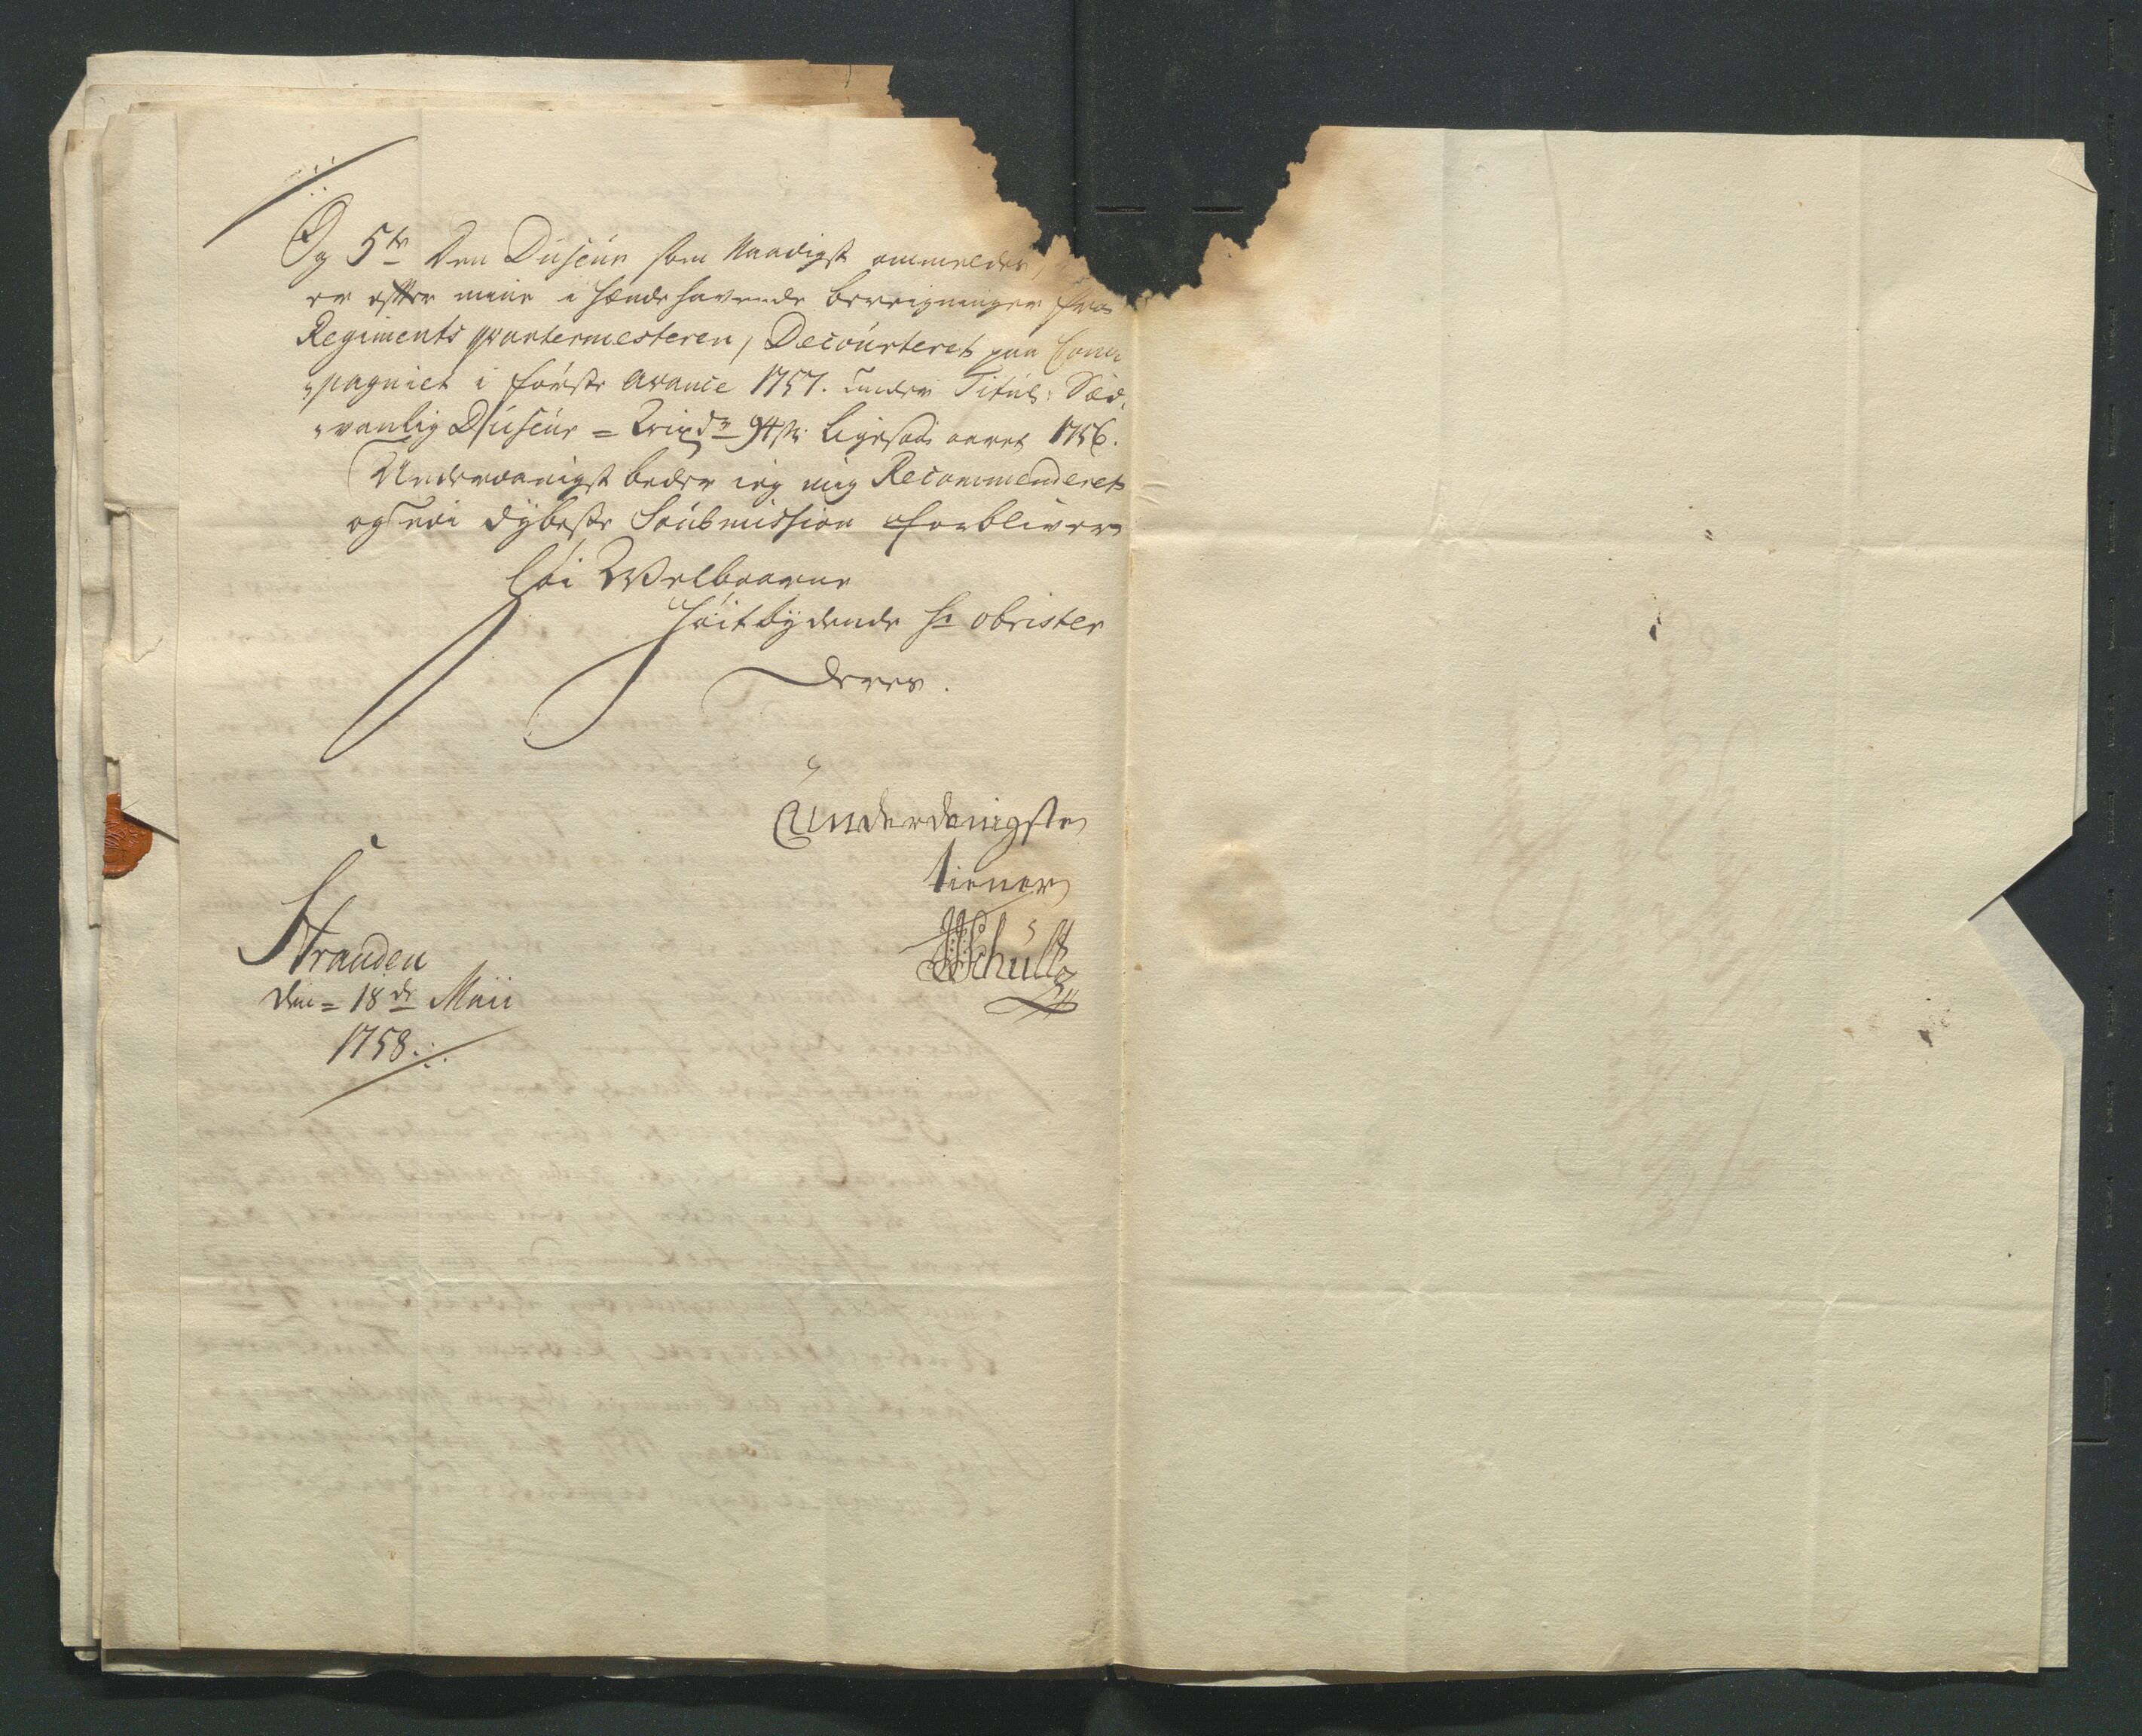 Og 5te Den Duseur som Naadigst ommelder,
er efter mine i hænde havende bereigninger fra
Regiments quartermesteren, Decourteret paa Com
pagniet i første avance 1757. under Titul: Sæd,
vanlig Duseur = 94 s. Ligesaa aaret 1756.
Underdanigst beder ieg mig Recommenderet
og i dybeste Soubmission forbliver
Høi Welbaarne
Høitbydende Hr Obrister
Deres.
Underdanigste
tiener
Schultz
Stranden
den = 18de Maii
1758.